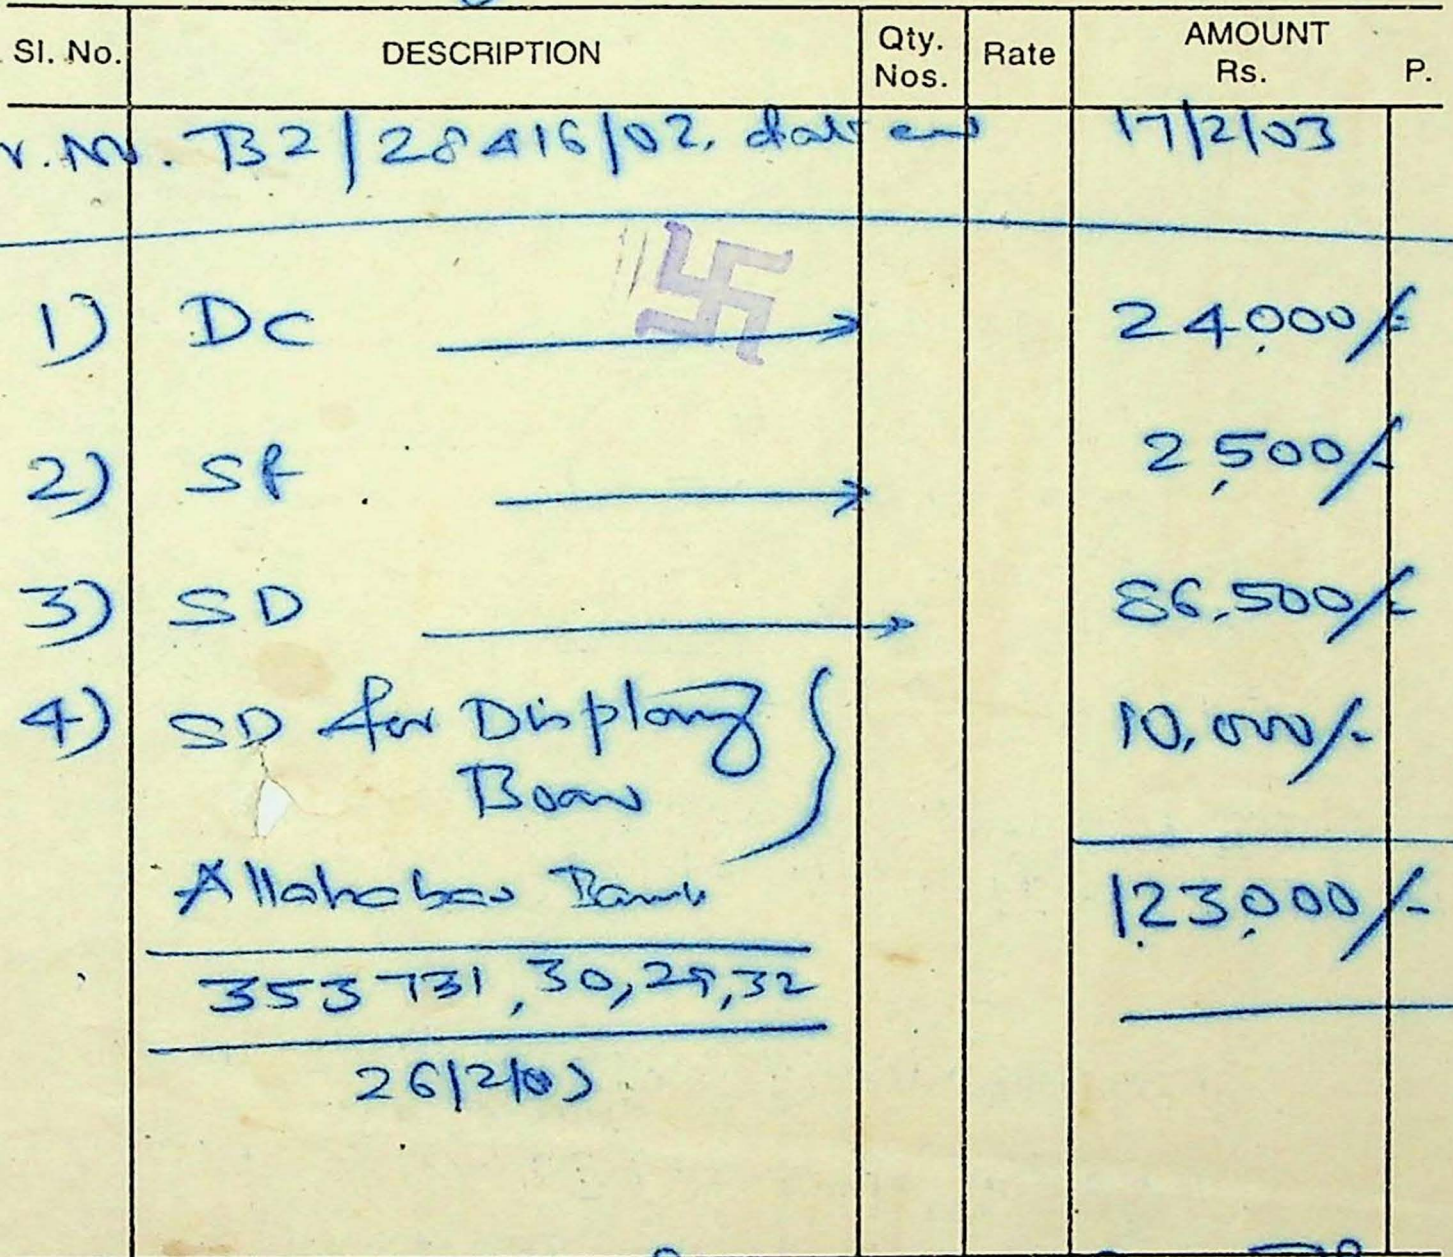 Sl. No. DESCRIPTION Qty. Nos. Rate AMOUNT Rs. P.
B2/28416/02. 17/2/03
1) DC 24,000/-
2) SF 2,500/-
3) SD 86,500/-
4) SD for Display 10,000/-
Board
Allahabad Bank 1,23,000/-
353731, 30, 29, 32
26/2/03